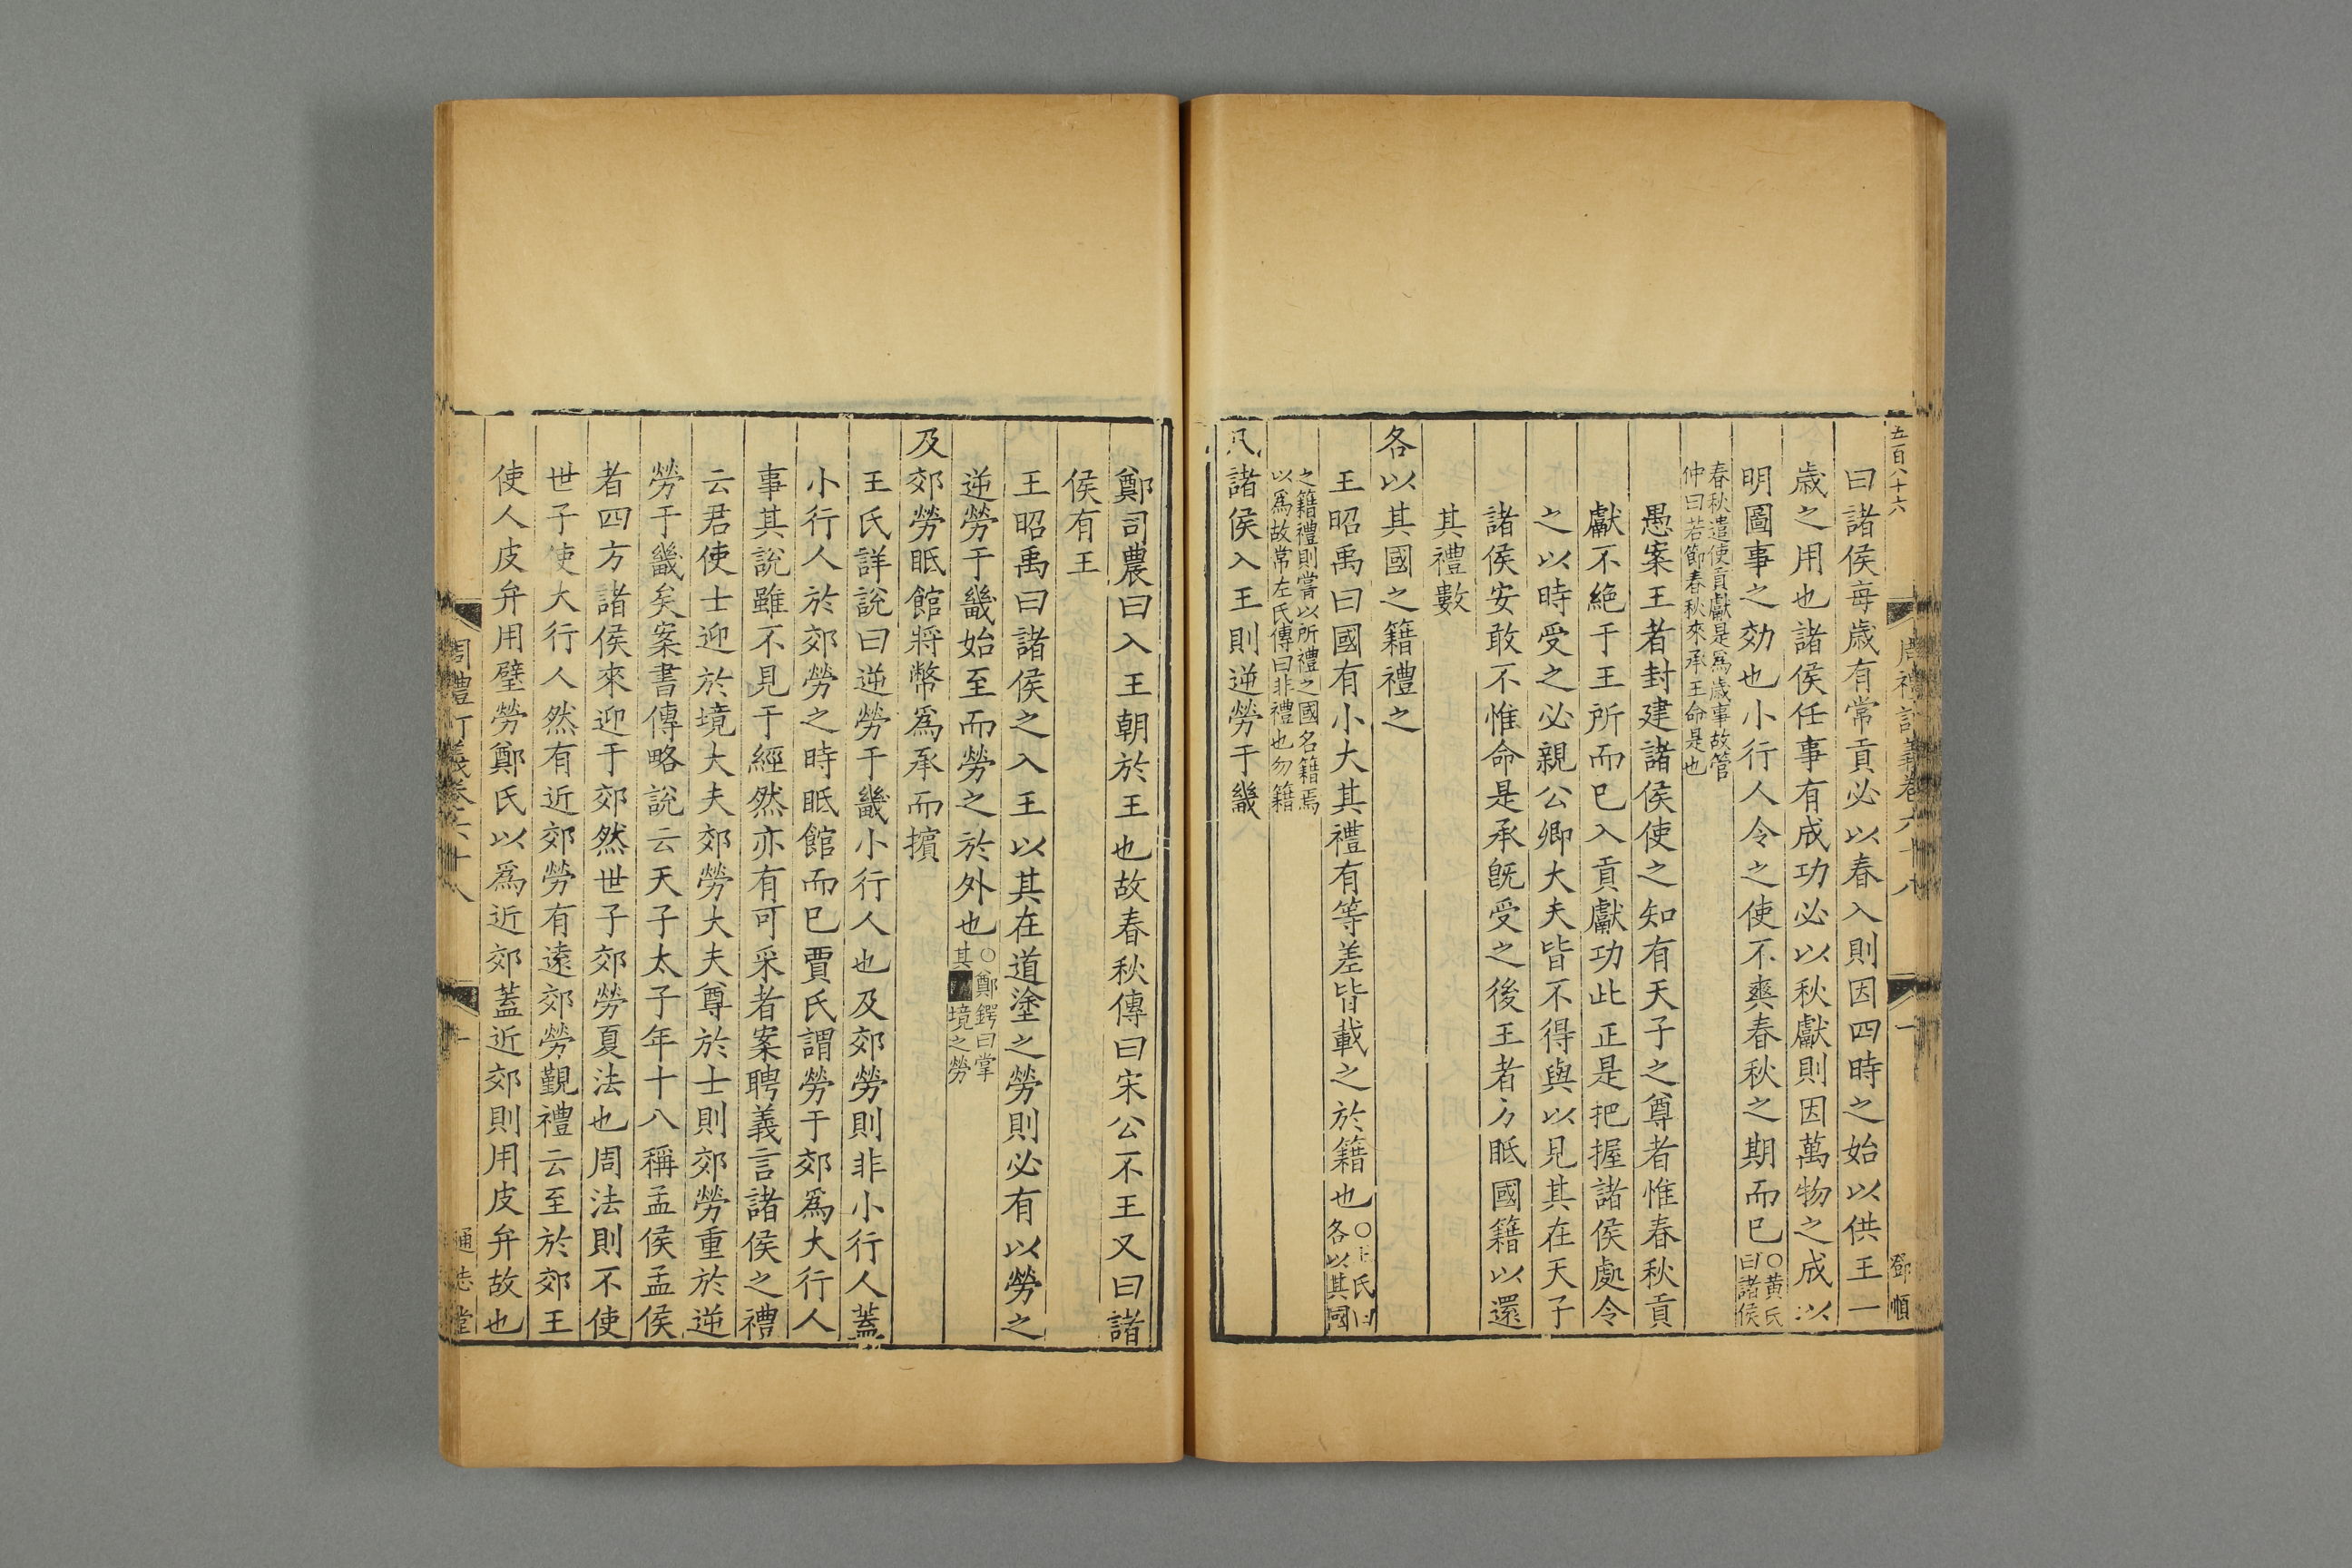 五百八十六
周禮訂義卷六十八
一
鄧順
曰諸侯每歲有常貢必以春入則因四時之始以供王一
歲之用也諸侯任事有成功必以秋獻則因萬物之成以
明圖事之効也小行人令之使不爽春秋之期而已○黃氏
曰諸侯
春秋遣使貢獻是爲歲事故管
仲曰若節春秋來承王命是也
愚案王者封建諸侯使之知有天子之尊者惟春秋貢
獻不絕于王所而已入貢獻功此正是把握諸侯處令
之以時受之必親公卿大夫皆不得與以見其在天子
諸侯安敢不惟命是承旣受之後王者方眡國籍以還
其禮數
各以其國之籍禮之
王昭禹曰國有小大其禮有等差皆載之於籍也○王氏曰
各以其國
之籍禮則嘗以所禮之國名籍焉
以爲故常左氏傳曰非禮也勿籍
凡諸侯入王則逆勞于畿
鄭司農曰入王朝於王也故春秋傳曰宋公不王又曰諸
侯有王
王昭禹曰諸侯之入王以其在道塗之勞則必有以勞之
逆勞于畿始至而勞之於外也○鄭鍔曰掌
其境之勞
及郊勞眡館將幣爲承而擯
王氏詳說曰逆勞于畿小行人也及郊勞則非小行人蓋
小行人於郊勞之時眡館而已賈氏謂勞于郊爲大行人
事其說雖不見于經然亦有可采者案聘義言諸侯之禮
云君使士迎於境大夫郊勞大夫尊於士則郊勞重於逆
勞于畿矣案書傳略說云天子太子年十八稱孟侯孟侯
者四方諸侯來迎于郊然世子郊勞夏法也周法則不使
世子使大行人然有近郊勞有遠郊勞覲禮云至於郊王
使人皮弁用璧勞鄭氏以爲近郊蓋近郊則用皮弁故也
周禮訂義卷六十八
通志堂